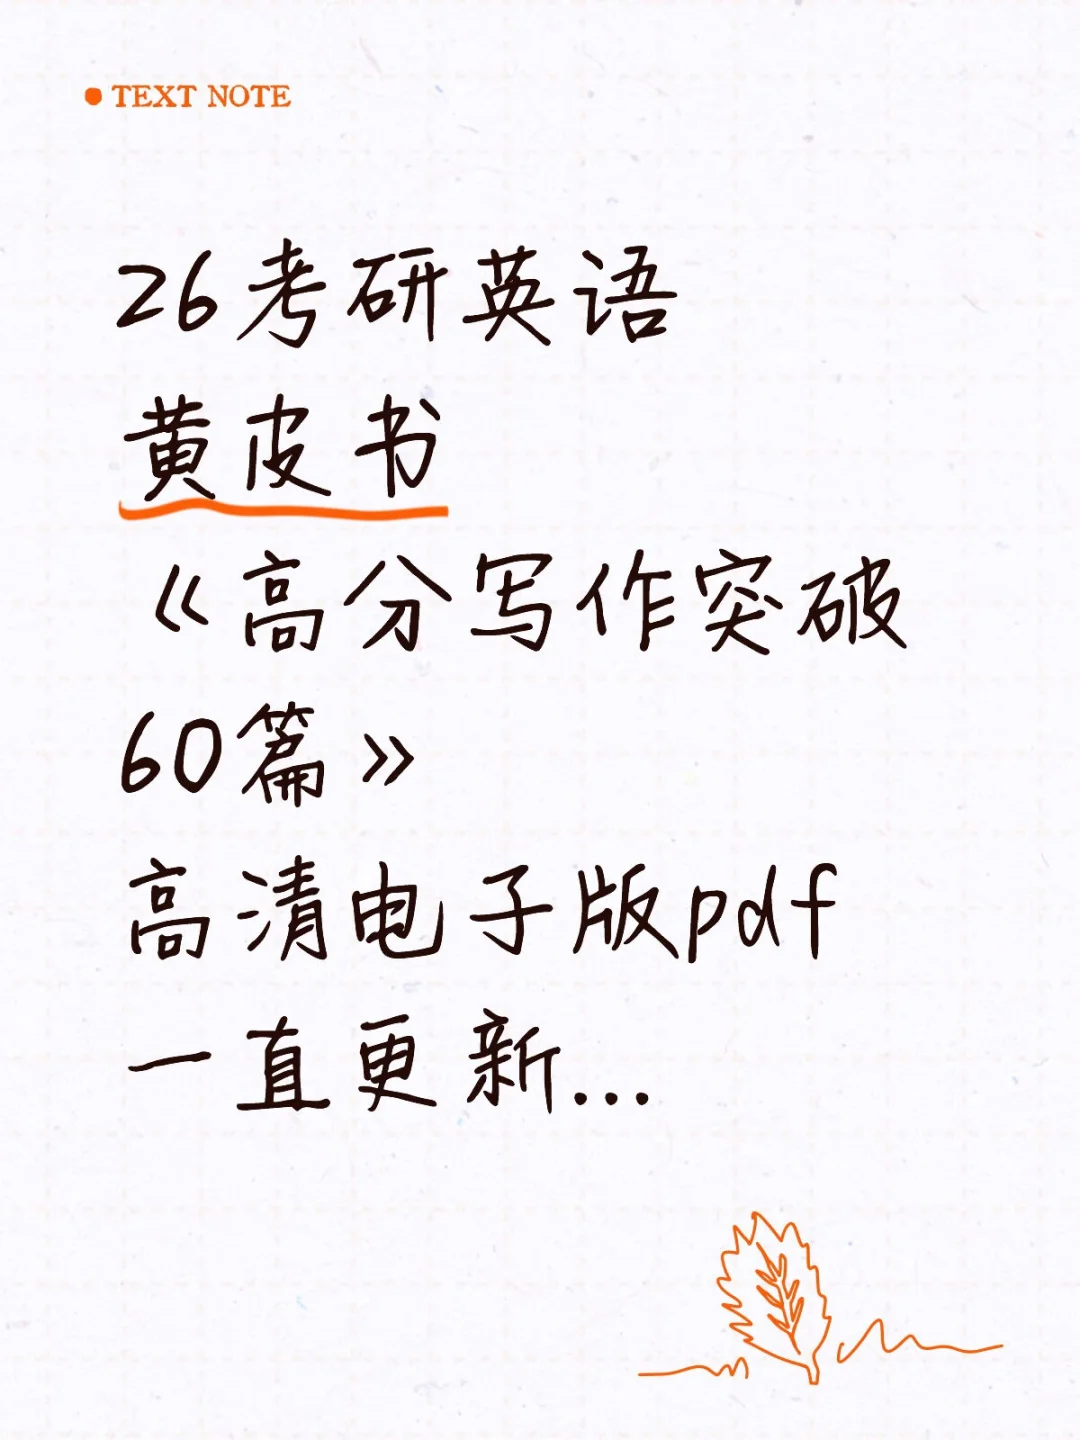 TEXT NOTE
26考研英语
黄皮书
《高分写作突破
60篇》
高清电子版pdf
一直更新...